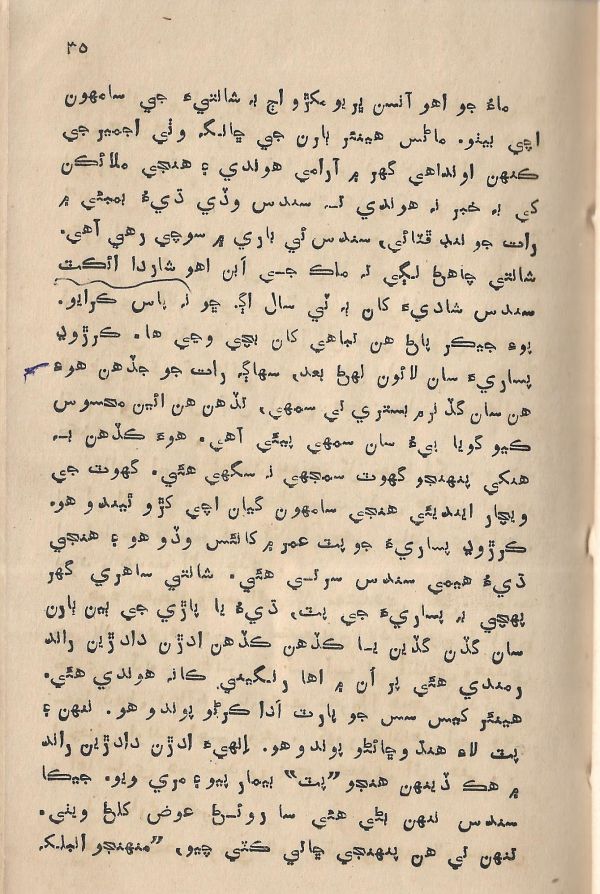 ٣٥
ماءُ جو اهو آنسن ڀريو مکڙو اڄ به شانتيءَ جي سامهون
اچي بيٺو. ماڻس هينئر ٻارن جي ڇانگ وٺي اجمير جي
ڪنهن اونداهي گهر ۾ آرامي هوندي ۽ هنجي ملائڪن
کي به خبر نه هوندي ته سندس وڏي ڌيءُ بمبئي ۾
رات جو ننڊ ڦٽائي، سندس ئي باري ۾ سوچي رهي آهي.
شانتي چاهڻ لڳي ته ملڪ جي اَبن اهو شاردا ائڪٽ
سندس شاديءَ کان به ٽي سال اڳ ڇو نه پاس ڪرايو.
پوءِ جيڪر پاڻ هن تباهي کان بچي وڃي ها. ڪرڙوڍ
پساريءَ سان لائون لهڻ بعد، سهاڳ رات جو جڏهن هوءَ
هن سان گڏ نرم بستري تي سمهي، تڏهن هن ائين محسوس
ڪيو گويا پيءُ سان سمهي پيئي آهي. هوءَ ڪڏهن به
هنکي پنهنجو گهوٽ سمجهي نه سگهي هئي. گهوٽ جي
ويچار ايندي ئي هنجي سامهون گيان اچي کڙو ٿيندو هو.
ڪرڙوڍ پساريءَ جو پٽ عمر ۾ کائنس وڏو هو ۽ هنجي
ڌيءُ هيمي سندس سرتي هئي. شانتي ساهري گهر
پهچي به پساريءَ جي پٽ، ڌيءُ يا پاڙي جي ٻين ٻارن
سان گڏن گڏين يا ڪڏهن ڪڏهن ادڙن دادڙين راند
رمندي هئي پر اُن ۾ اها رنگيني ڪانه هوندي هئي.
هينئر کيس سس جو پارت اَدا ڪرڻو پوندو هو. ننهن ۽
پٽ لاءِ هنڌ وڇائڻو پوندو هو. اِنهيءَ ادڙن دادڙين راند
۾ هڪ ڏينهن هنجو ”پٽ“ بيمار پيو ۽ مري ويو. جيڪا
سندس ننهن بڻي هئي سا روئڻ عوض کلڻ ويٺي.
تنهن تي هن پنهنجي ڇاتي ڪٽي چيو، ”منهنجو